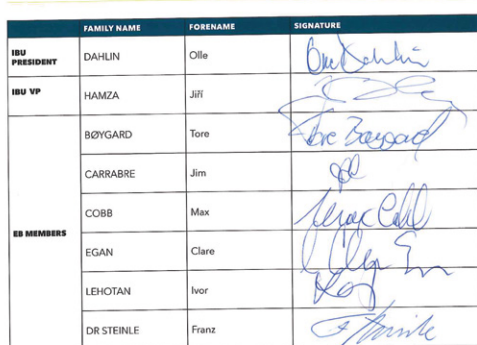 FAMILY NAME FORENAME SIGNATURE
IBU PRESIDENT DAHLIN Olle
IBU VP HAMZA Jiří
EB MEMBERS
BØYGARD Tore Tore Bøygard
CARRABRE Jim
COBB Max Max Cobb
EGAN Clare
LEHOTAN Ivor
DR STEINLE Franz